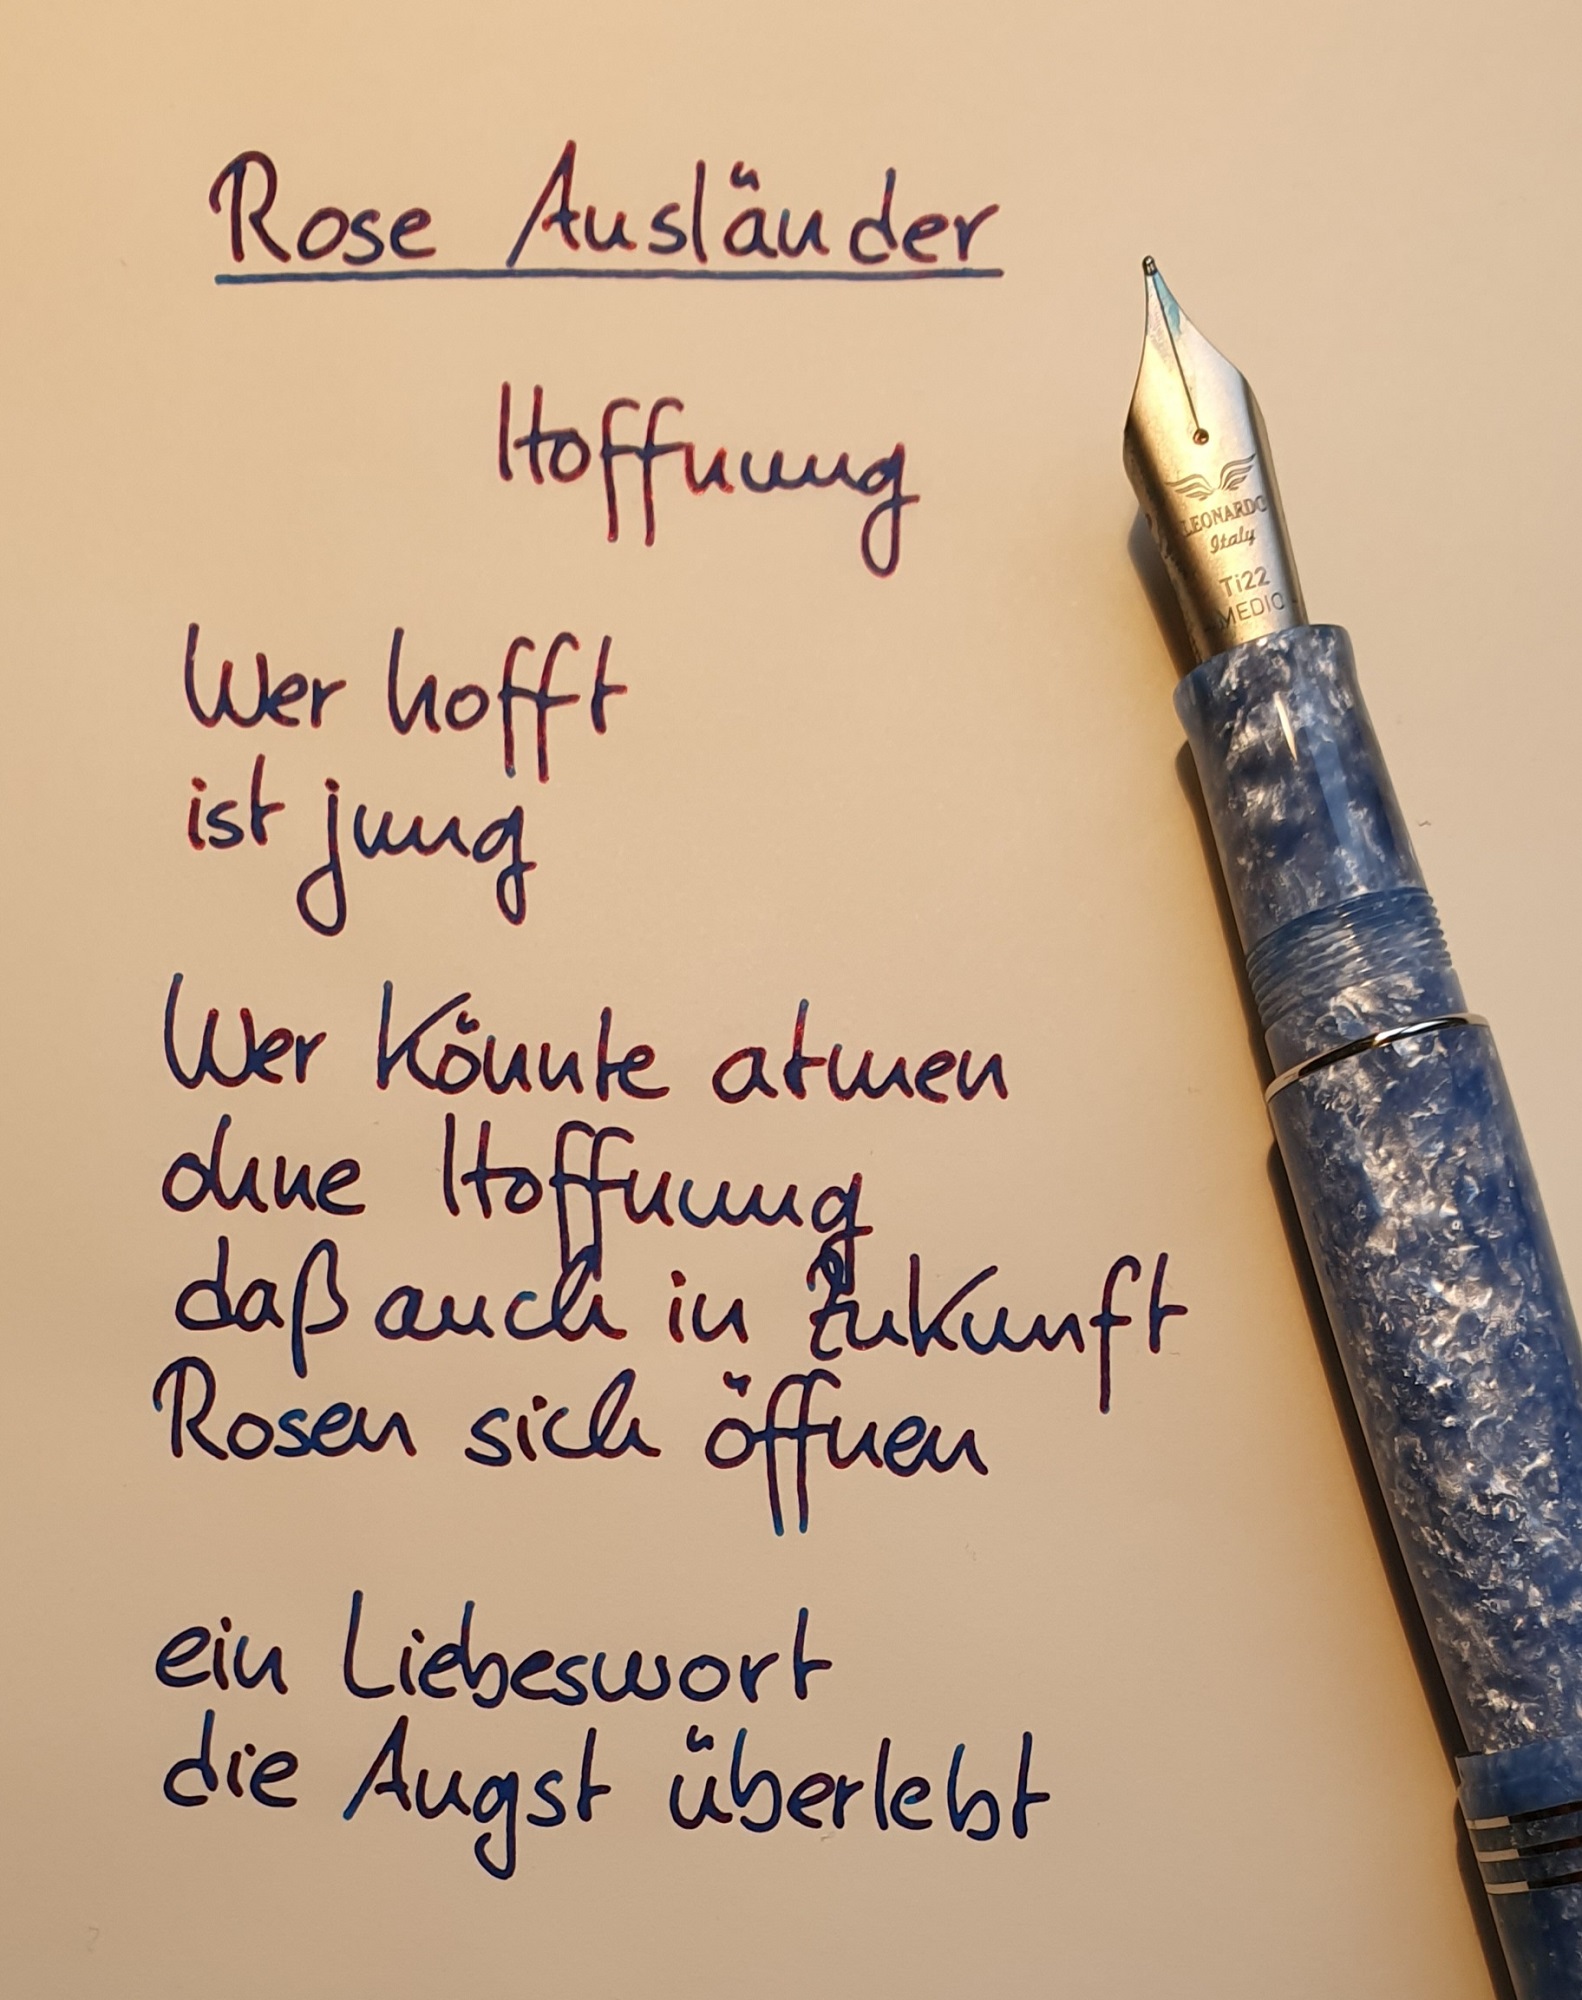 Rose Ausländer
Hoffnung
Wer hofft
ist jung
Wer könnte atmen
ohne Hoffnung
daß auch in Zukunft
Rosen sich öffnen
ein Liebeswort
die Angst überlebt
LEONARDO
Italy
Ti22
MEDIO